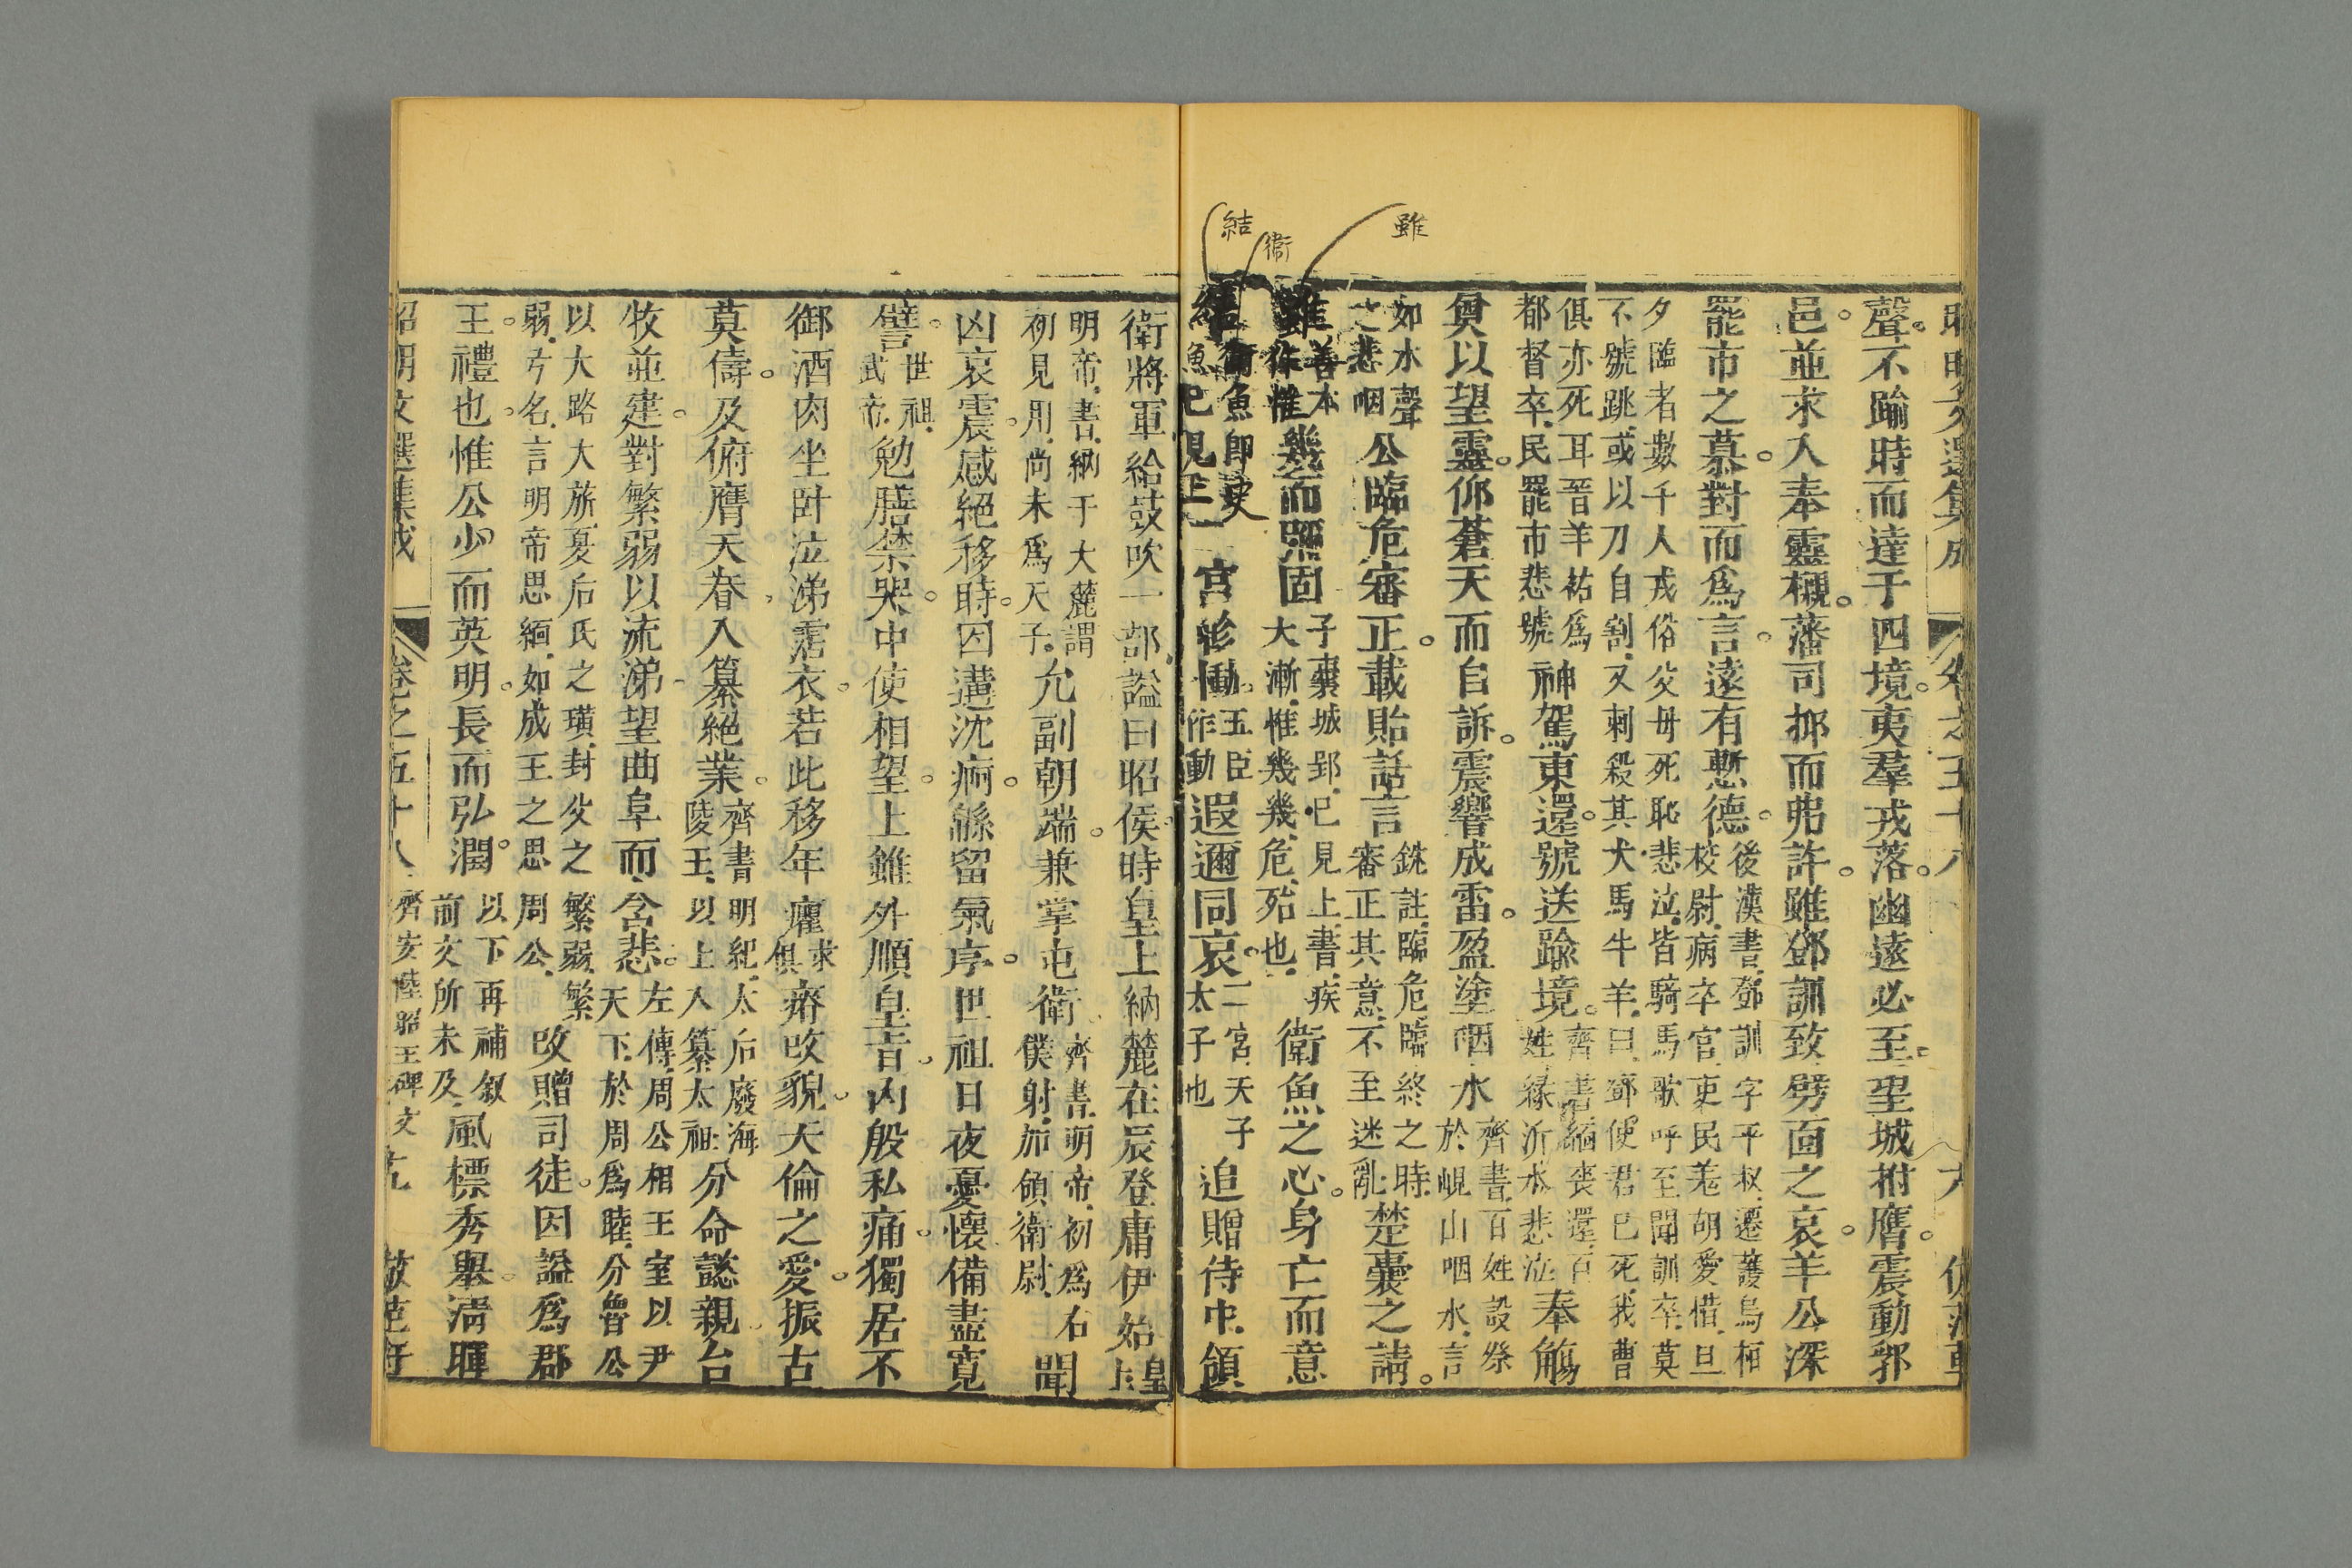 昭明文選集成
卷之五十八
聲不踰時而達于四境夷羣戎落幽遠必至望城拊膺震動郛
邑並求入奉靈櫬藩司抑而弗許雖鄧訓致劈面之哀羊公深
罷市之慕對而爲言遠有慙德後漢書鄧訓字平叔遷護烏桓
校尉病卒官吏民羌胡愛惜旦
夕臨者數千人戎俗父母死恥悲泣皆騎馬歌呼至聞訓卒莫
不號跳或以刀自割又刺殺其犬馬牛羊曰鄧使君已死我曹
俱亦死耳晉羊祜爲
都督卒民罷市悲號神駕東還號送踰境齊書緬喪還百
姓緣沂水悲泣奉觴
奠以望靈仰蒼天而自訴震響成雷盈塗咽水齊書百姓設祭
於峴山咽水言
如水聲
之悲咽公臨危審正載貽話言銑註臨危臨終之時
審正其意不至迷亂楚囊之請
雖善本
作惟幾而彌固子囊城郢已見上書疾
大漸惟幾幾危殆也衛魚之心身亡而意
結衛魚卽史
魚已見上二宮軫慟五臣
作動遐邇同哀二宮天子
太子也追贈侍中領
雖
衞
結
衛將軍給鼓吹一部諡曰昭侯時皇上納麓在辰登庸伊始皇上
明帝書納于大麓謂
初見用尚未爲天子允副朝端兼掌屯衛齊書明帝初爲右
僕射加領衛尉聞
凶哀震感絕移時因遘沈痾緜留氣序世祖日夜憂懷備盡寬
譬世祖
武帝勉膳禁哭中使相望上雖外順皇旨內殷私痛獨居不
御酒肉坐卧泣涕霑衣若此移年癯求
俱瘠改貌天倫之愛振古
莫儔及俯膺天眷入纂絕業齊書明紀太后廢海
陵王以上入纂太祖分命懿親台
牧並建對繁弱以流涕望曲阜而含悲左傳周公相王室以尹
天下於周爲睦分魯公
以大路大旂夏后氏之璜封父之繁弱繁
弱弓名言明帝思緬如成王之思周公改贈司徒因諡爲郡
王禮也惟公少而英明長而弘潤以下再補叙
前文所未及風標秀舉清暉
昭明文選集成
卷之五十八
齊安陸昭王碑文